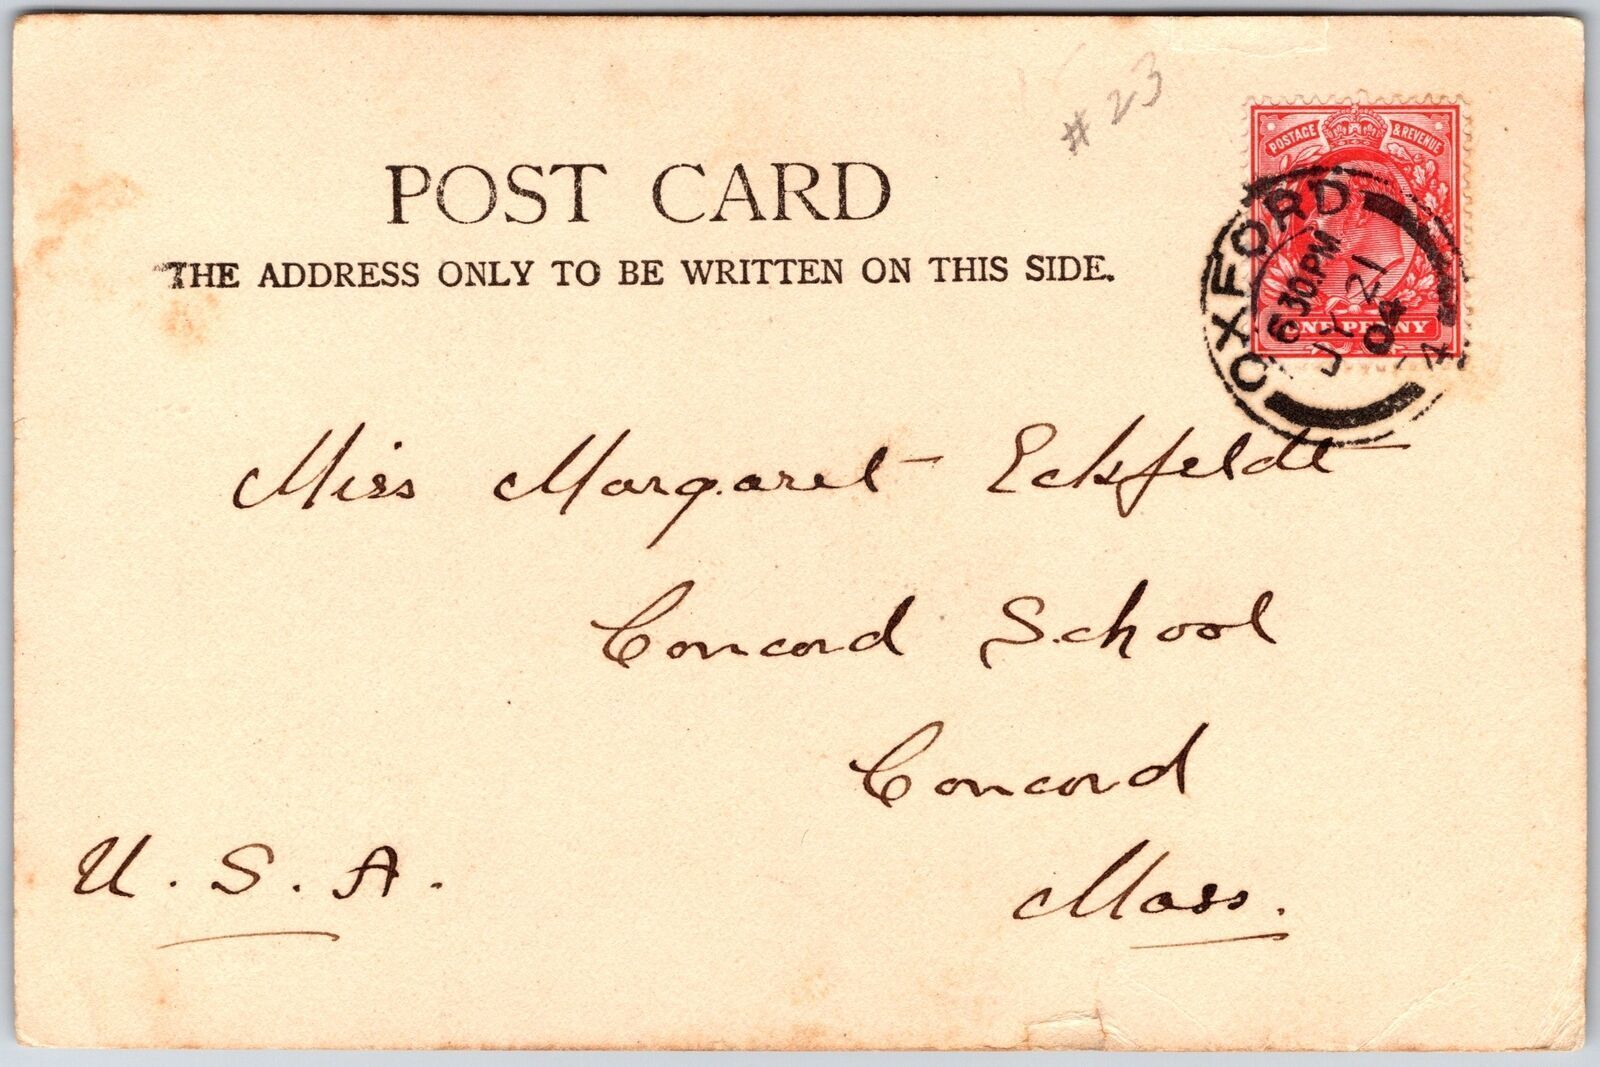 # 23
POST CARD
THE ADDRESS ONLY TO BE WRITTEN ON THIS SIDE.
POSTAGE & REVENUE
ONE PENNY
OXFORD
6 30.PM
JY 21
04
4
Miss Margaret Eckfeldt
Concord School
Concord
Mass.
U.S.A.